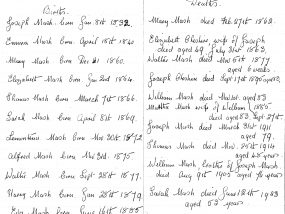 Births.
Joseph Mash born Jan 8th 1832.
Emma Mash born April 15th 1840
Mary Mash born Dec 21 1860.
Elizabeth Mash born Jan 2nd 1864.
Thomas Mash born March 7th 1866.
Sarah Mash born April 8th 1869.
Mash born Nov 30th 1872
Alfred Mash born Nov 3rd 1875
Walter Mash born Sept 28th 1877
Harry Mash born Jan 28th 1879
Mash born 16th 1885
Deaths.
Mary Mash died Feb 27th 1862.
Elizabeth Cheshire, wife of Joseph
died aged 69 July 31st 1863.
Walter Mash died Nov 5th 1877
aged 6 weeks
Joseph Cheshire died Sept 17th 1895
William Mash died aged 83
Mash wife of William 1885
died aged 83 Sept 27th
Joseph Mash died March 31st 1911
aged 79.
Thomas Mash died Nov 25th 1914
aged 48 years
William Mash brother of Joseph Mash
died Aug 9th 1902 aged years
Sarah Mash died June 18th 1923
aged 53 years.